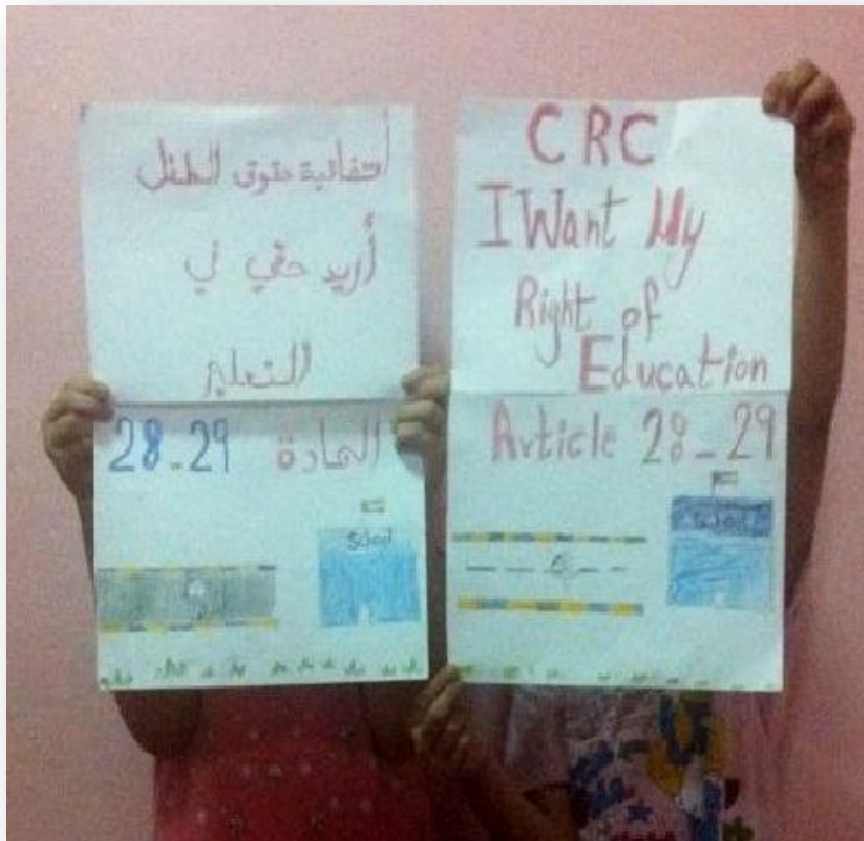 اتفاقية حقوق الطفل
أريد حقي في
التعليم
المادة 28-29
School
CRC
I Want My
Right of
Education
Article 28-29
School